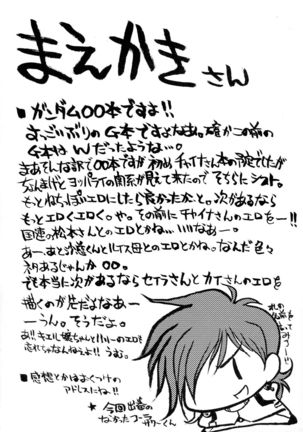 まえがきさん
■ガンダム00本ですよ!!
すっごいぶりのG本ですよなあ。確かこの前の
G本はWだったような…。
まあそんな訳で00本ですが初出チャイナさん本の予定でしたが
ちょんまげとヨッパライの関係が見えて来たのでそちらにシフト。
もっとねちっぽいエロにしたら良かったかーと。次があるなら
もっとエロくエロく。や。その前にチャイナさんのエロを—!!
国連の松本さんとのエロとかね…いいなあー。
あー。あと沙慈くんとルイス母とのエロとかね。なんだ色々
ネタあるじゃんか00。
でも本当に次があるならセイラさんとカイさんのエロを
描くのが先だよなあー
ーうん。そうだよ。
あ!!キエル嬢ちゃんとハリーのエロも
忘れちゃなんねえよ!!うむ。
■感想とかはおくづけの
アドレスにね!!
★今回出番の
なかったコーラ
サワーくん